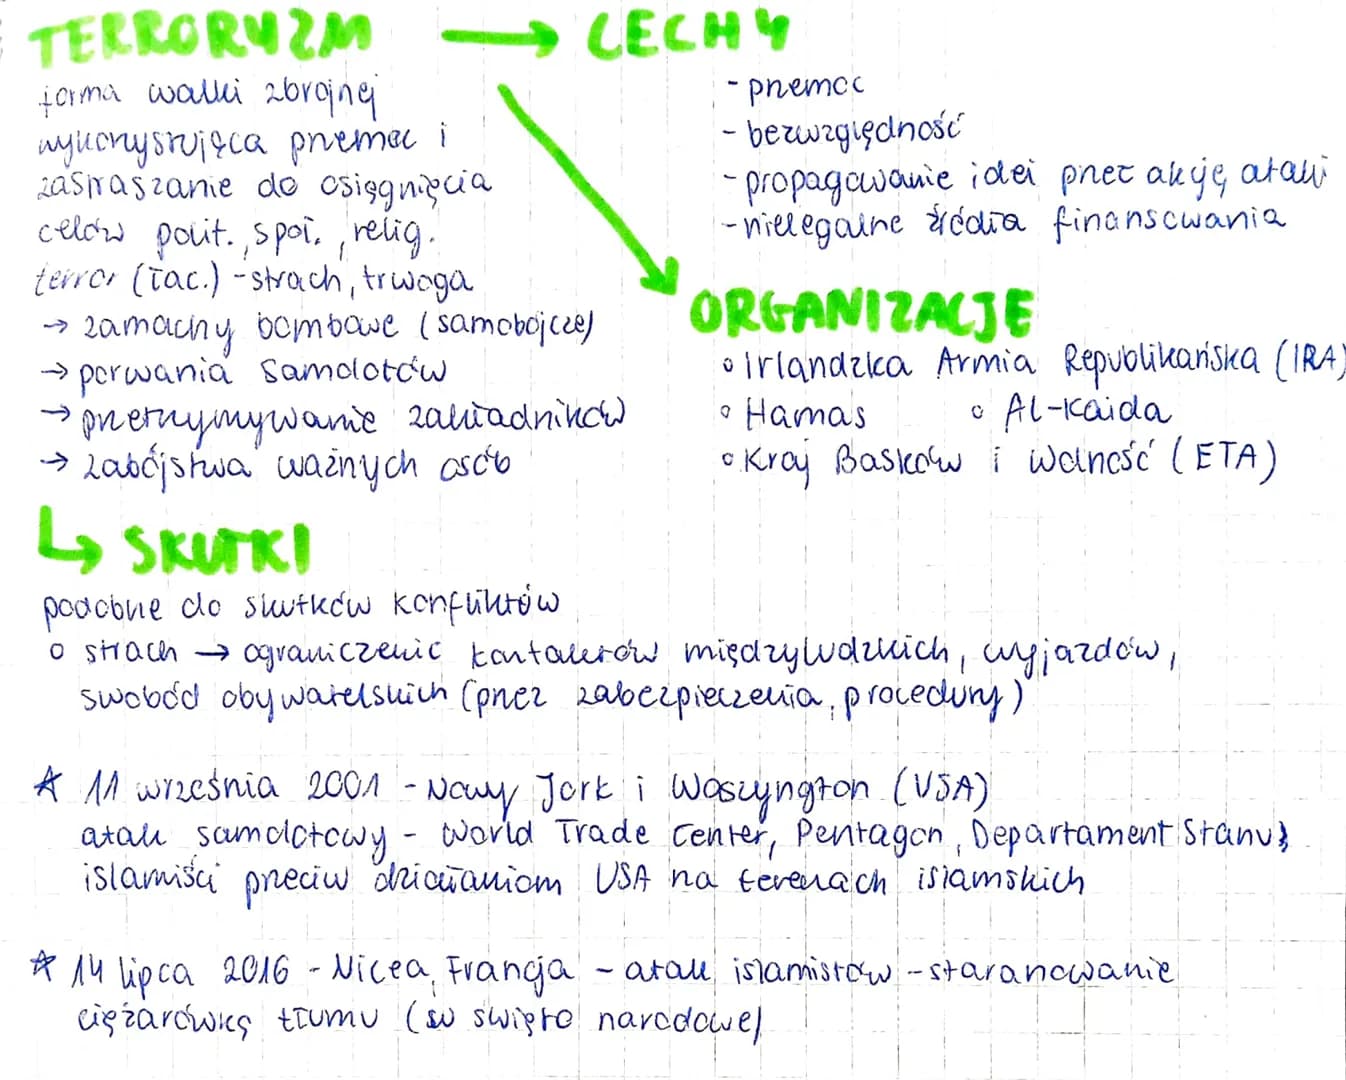 TERRORYZM → CECHY
forma walki zbrojnej
wykorzystująca przemoc i
zastraszanie do osiągnięcia
celów polit., społ., relig.
terror (łac.) - strach, trwoga
→ zamachy bombowe (samobójcze)
→ porwania samolotów
→ przetrzymywanie zakładników
→ zabójstwa ważnych osób
- przemoc
- bezwzględność
- propagowanie idei przez akcję, ataki
- nielegalne źródła finansowania
ORGANIZACJE
o Irlandzka Armia Republikańska (IRA)
o Hamas o Al-Kaida
o Kraj Basków i Wolność (ETA)
↳ SKUTKI
podobne do skutków konfliktów
o strach → ograniczenie kontaktów międzyludzkich, wyjazdów,
swobód obywatelskich (przez zabezpieczenia, procedury)
☆ 11 września 2001 - Nowy Jork i Waszyngton (USA)
atak samolotowy - World Trade Center, Pentagon, Departament Stanu;
islamiści przeciw działaniom USA na terenach islamskich
☆ 14 lipca 2016 - Nicea, Francja - atak islamistów - staranowanie
ciężarówką tłumu (w święto narodowe)